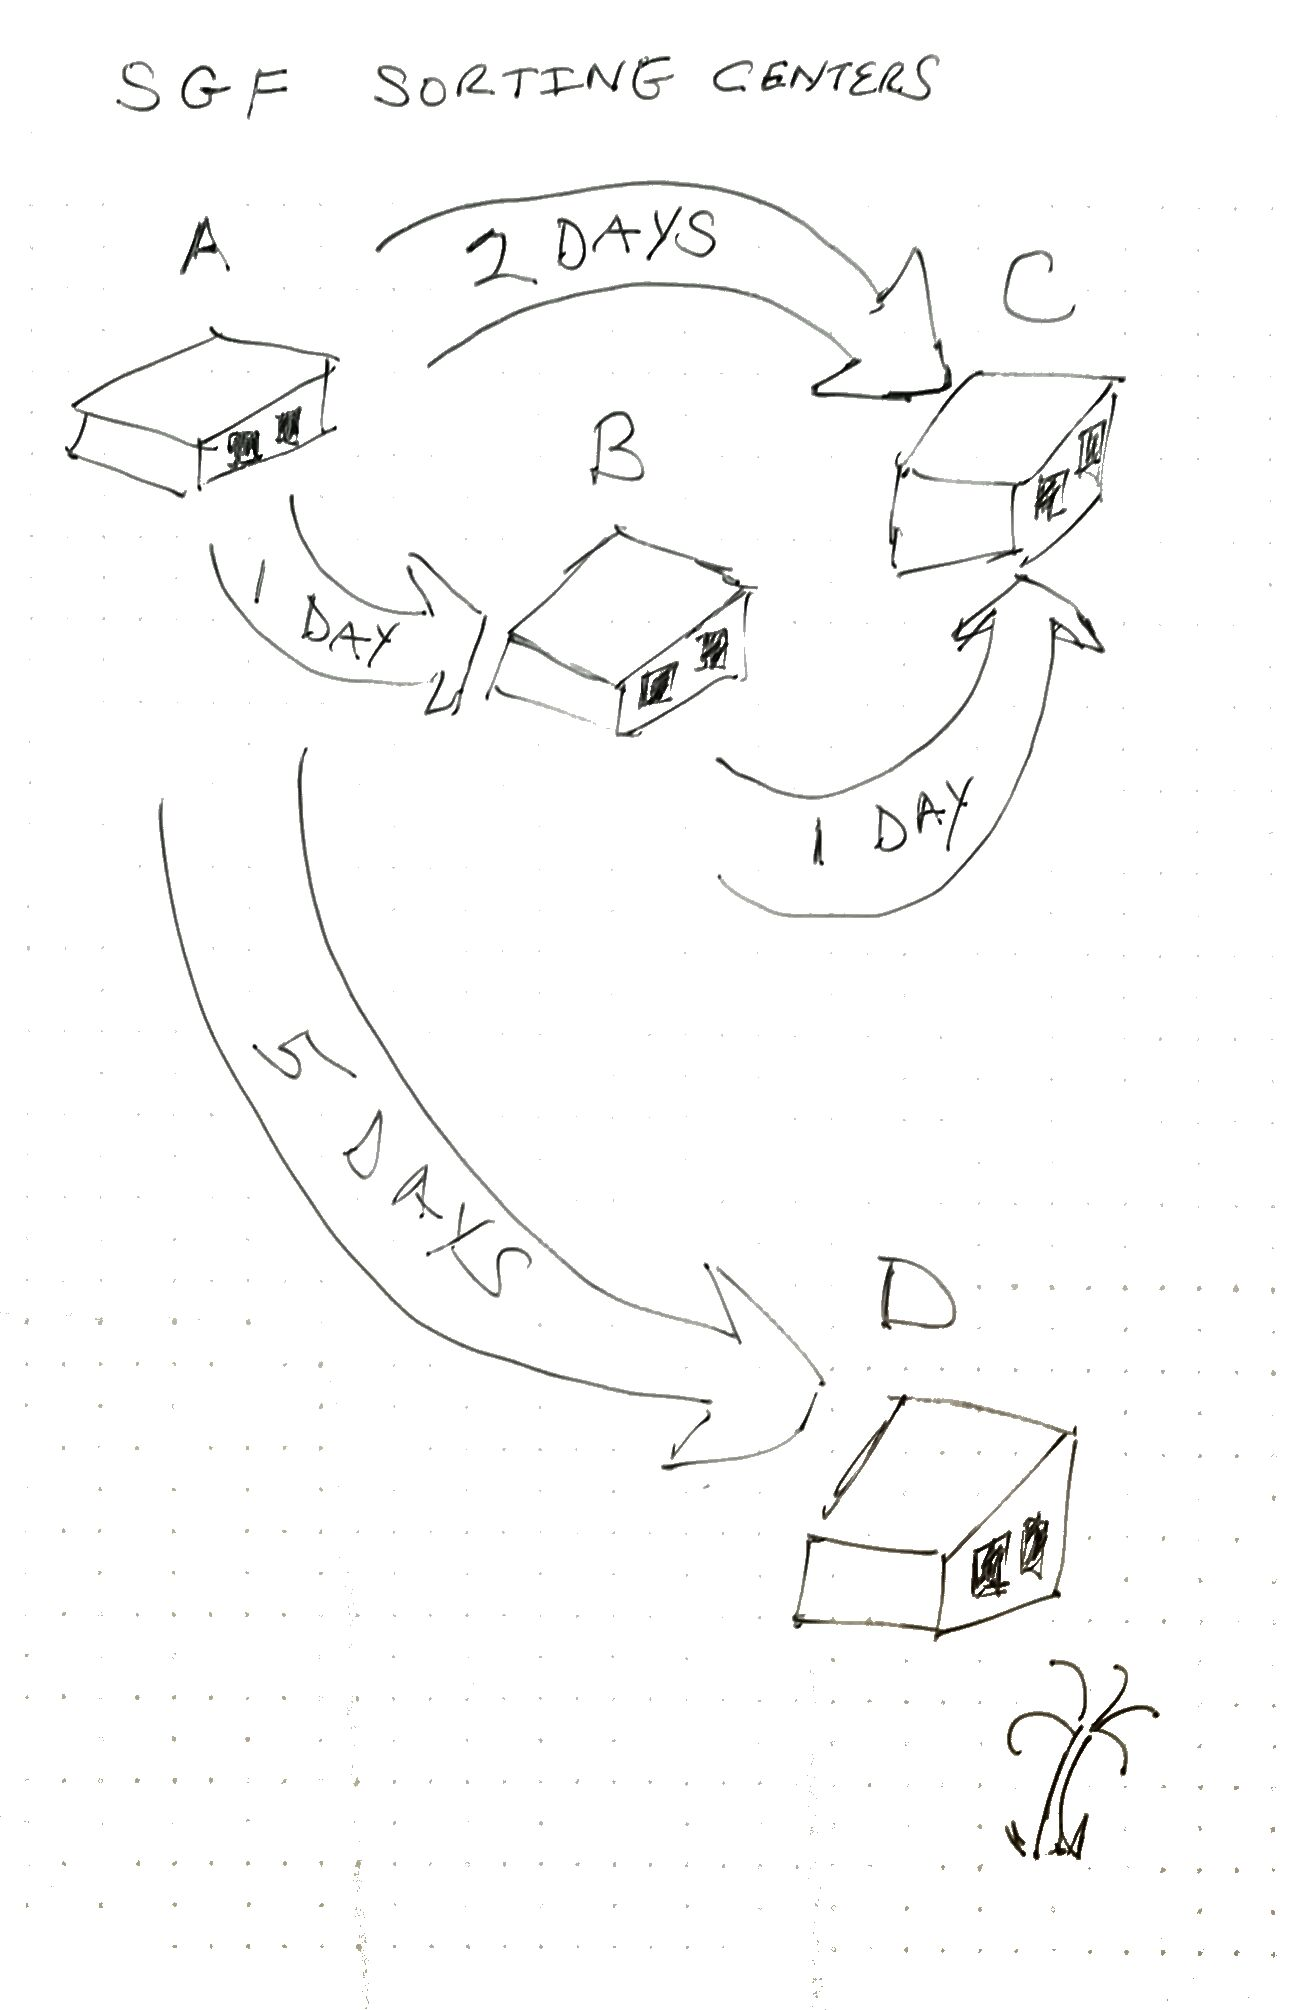 SGF SORTING CENTERS
A
2 DAYS
C
B
1 DAY
1 DAY
5 DAYS
D